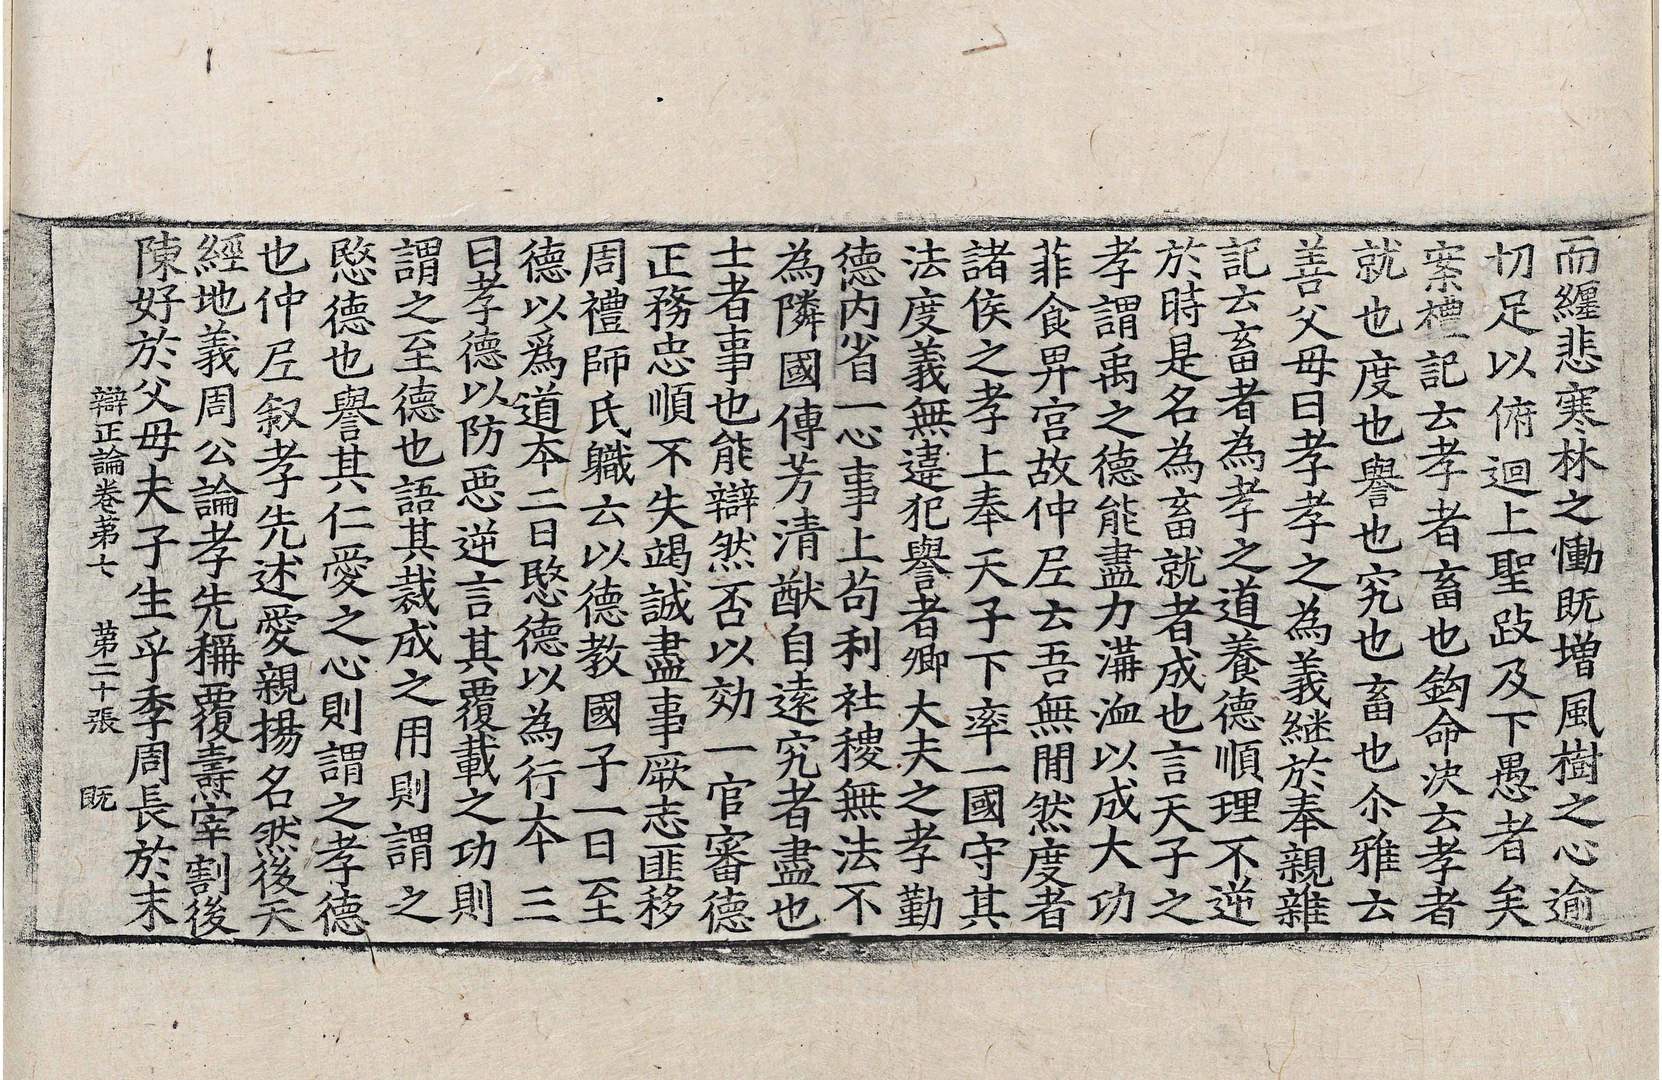 而纏悲寒林之慟既增風樹之心逾
切足以俯迴上聖跂及下愚者矣
案禮記云孝者畜也鉤命決云孝者
就也度也譽也究也畜也尒雅云
善父母曰孝孝之為義継於奉親雜
記云畜者為孝之道養德順理不逆
於時是名為畜就者成也言天子之
孝謂禹之德能盡力溝洫以成大功
菲食畀宮故仲尼云吾無閒然度者
諸侯之孝上奉天子下率一國守其
法度義無違犯譽者卿大夫之孝勤
德內省一心事上苟利社稷無法不
為隣國傳芳清猷自遠究者盡也
士者事也能辯然否以効一官審德
正務忠順不失竭誠盡事厥志匪移
周禮師氏職云以德教國子一曰至
德以爲道夲二曰愍德以為行夲三
曰孝德以防惡逆言其覆載之功則
謂之至德也語其裁成之用則謂之
愍德也譽其仁愛之心則謂之孝德
也仲尼叙孝先述愛親揚名然後天
經地義周公論孝先稱覆燾宰割後
陳好於父母夫子生乎季周長於末
辯正論卷第七 第二十張 既